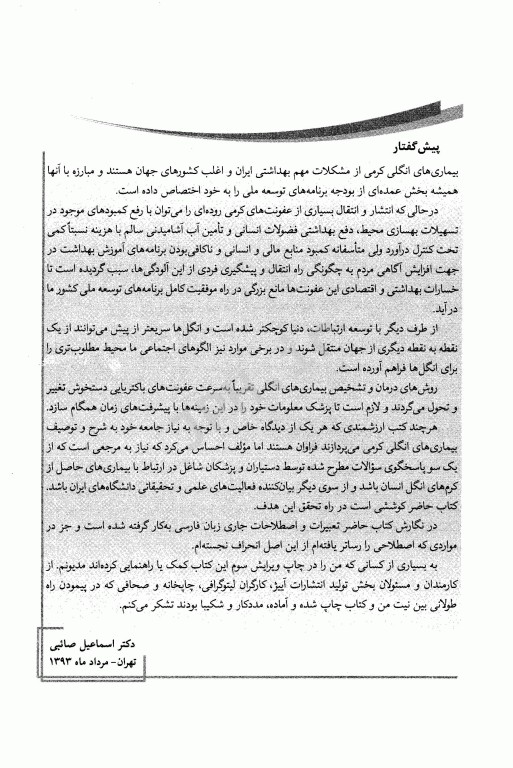 پیش گفتار
بیماری‌های انگلی کرمی از مشکلات مهم بهداشتی ایران و اغلب کشورهای جهان هستند و مبارزه با آنها
همیشه بخش عمده‌ای از بودجه برنامه‌های توسعه ملی را به خود اختصاص داده است.
درحالی که انتشار و انتقال بسیاری از عفونت‌های کرمی روده‌ای را می‌توان با رفع کمبودهای موجود در
تسهیلات بهسازی محیط، دفع بهداشتی فضولات انسانی و تأمین آب آشامیدنی سالم با هزینه نسبتاً کمی
تحت کنترل درآورد ولی متأسفانه کمبود منابع مالی و انسانی و ناکافی‌بودن برنامه‌های آموزش بهداشت در
جهت افزایش آگاهی مردم به چگونگی راه انتقال و پیشگیری فردی از این آلودگی‌ها، سبب گردیده است تا
خسارات بهداشتی و اقتصادی این عفونت‌ها مانع بزرگی در راه موفقیت کامل برنامه‌های توسعه ملی کشور ما
در آید.
از طرف دیگر با توسعه ارتباطات، دنیا کوچکتر شده است و انگل‌ها سریعتر از پیش می‌توانند از یک
نقطه به نقطه دیگری از جهان منتقل شوند و در برخی موارد نیز الگوهای اجتماعی ما محیط مطلوب‌تری را
برای انگل‌ها فراهم آورده است.
روش‌های درمان و تشخیص بیماری‌های انگلی تقریباً به‌سرعت عفونت‌های باکتریایی دستخوش تغییر
و تحول می‌گردند و لازم است تا پزشک معلومات خود را در این زمینه‌ها با پیشرفت‌های زمان همگام سازد.
هرچند کتب ارزشمندی که هر یک از دیدگاه خاص و با توجه به نیاز جامعه خود به شرح و توصیف
بیماری‌های انگلی کرمی می‌پردازند فراوان هستند اما مؤلف احساس می‌کرد که نیاز به مرجعی است که از
یک سو پاسخگوی سؤالات مطرح شده توسط دستیاران و پزشکان شاغل در ارتباط با بیماری‌های حاصل از
کرم‌های انگل انسان باشد و از سوی دیگر بیان‌کننده فعالیت‌های علمی و تحقیقاتی دانشگاه‌های ایران باشد.
کتاب حاضر کوششی است در راه تحقق این هدف.
در نگارش کتاب حاضر تعبیرات و اصطلاحات جاری زبان فارسی به‌کار گرفته شده است و جز در
مواردی که اصطلاحی را رساتر یافته‌ام از این اصل انحراف نجسته‌ام.
به بسیاری از کسانی که من را در چاپ ویرایش سوم این کتاب کمک یا راهنمایی کرده‌اند مدیونم. از
کارمندان و مسئولان بخش تولید انتشارات آییژ، کارگران لیتوگرافی، چاپخانه و صحافی که در پیمودن راه
طولانی بین نیت من و کتاب چاپ شده و آماده، مددکار و شکیبا بودند تشکر می‌کنم.
دکتر اسماعیل صائبی
تهران - مرداد ماه ۱۳۹۳